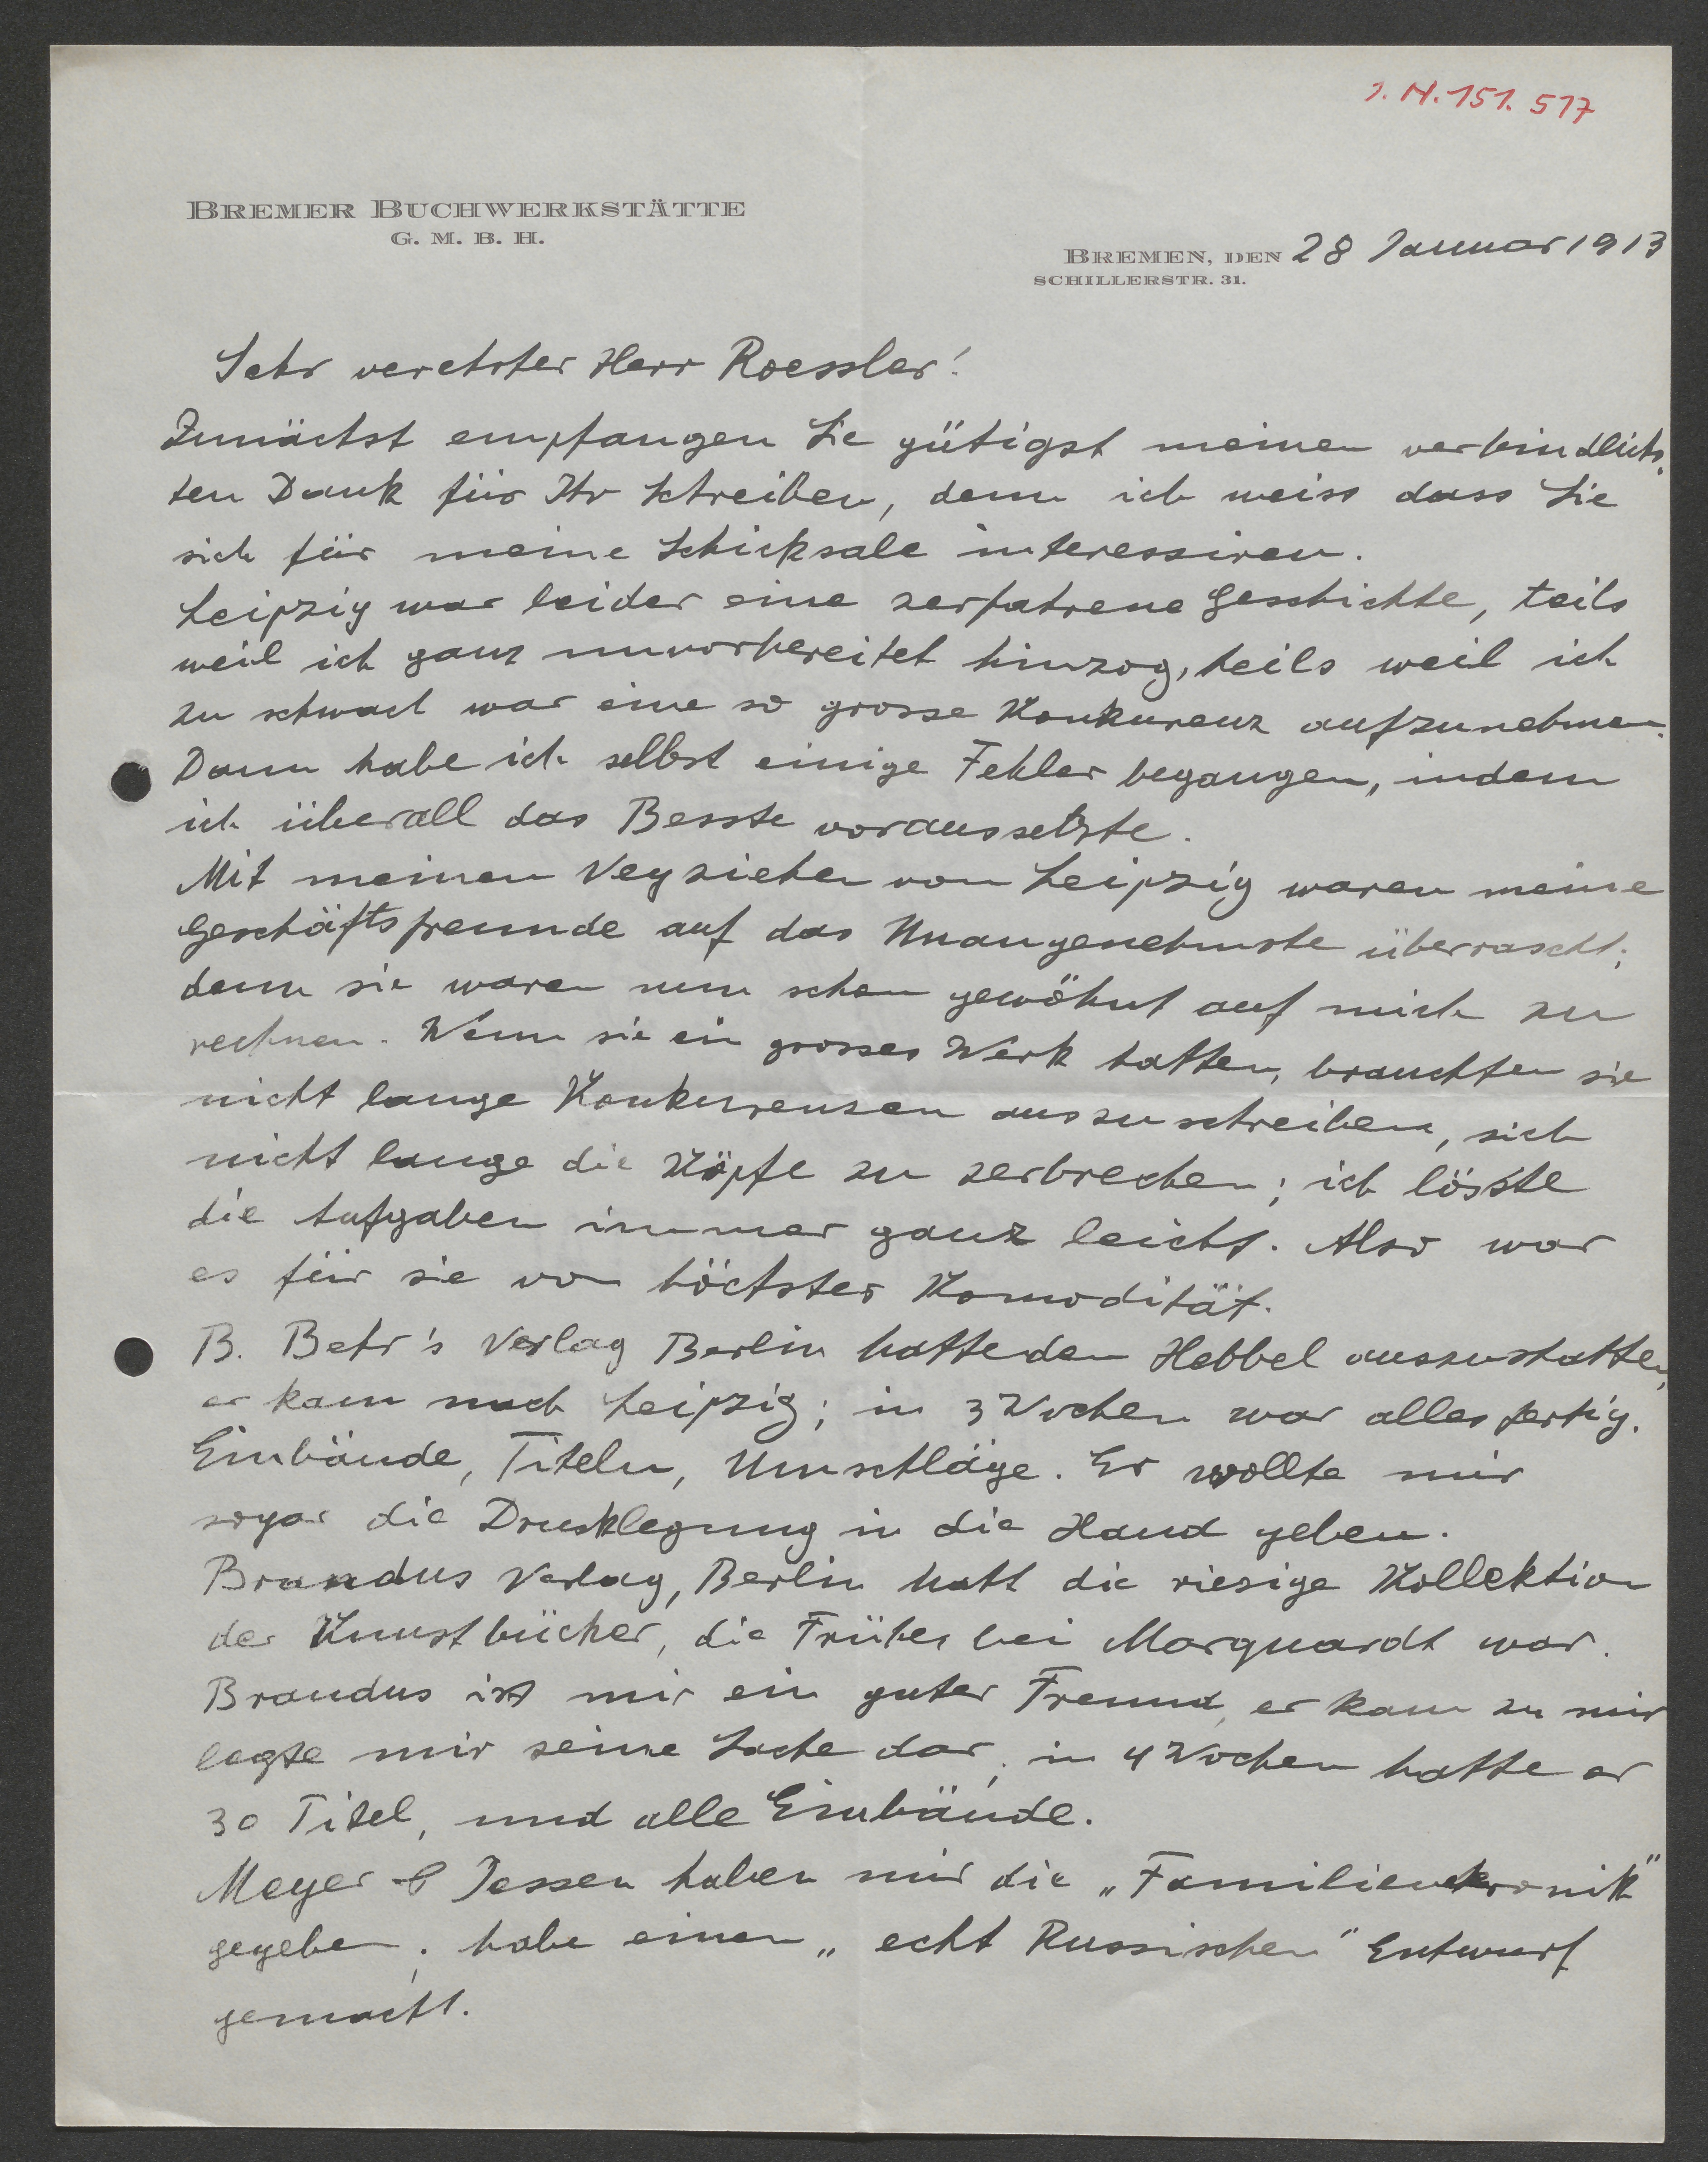 J. N. 151. 517
BREMER BUCHWERKSTÄTTE
G. M. B. H.
BREMEN, DEN 28 Januar 1913
SCHILLERSTR. 31.
Sehr verehrter Herr Roessler!
Zunächst empfangen Sie gütigst meinen verbindlichs-
ten Dank für Ihr Schreiben, denn ich weiss dass Sie
sich für meine Schicksale interessiren.
Leipzig war leider eine zerfahrene Geschichte, teils
weil ich ganz unvorbereitet hinzog, teils weil ich
zu schwach war eine so grosse Konkurenz aufzunehmen.
Dann habe ich selbst einige Fehler begangen, indem
ich überall das Besste voraussetzte.
Mit meinem Wegziehen von Leipzig waren meine
Geschäftsfreunde auf das Unangenehmste überrascht;
denn sie waren nun schon gewöhnt auf mich zu
rechnen. Wenn sie ein grosses Werk hatten, brauchten sie
nicht lange Konkurrenzen auszuschreiben, sich
nicht lange die Köpfe zu zerbrechen; ich lösste
die Aufgaben immer ganz leicht. Also war
es für sie von höchster Komodität.
B. Behr's Verlag Berlin hatte den Hebbel auszustatten,
er kam nach Leipzig; in 3 Wochen war alles fertig.
Einbände, Titeln, Umschläge. Er wollte mir
sogar die Drucklegung in die Hand geben.
Brandus Verlag, Berlin hatt die riesige Kollektion
der Kunstbücher, die Früher bei Marquardt war.
Brandus ist mir ein guter Freund, er kam zu mir
legte mir seine Sache dar; in 4 Wochen hatte er
30 Titel, und alle Einbände.
Meyer & Jessen haben mir die „Familienkronik"
gegeben; habe einen „echt Russischen" Entwurf
gemacht.